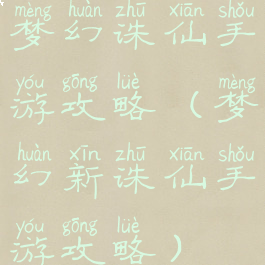 mèng huàn zhū xiān shǒu
梦幻诛仙手
yóu gōng lüè mèng
游攻略（梦
huàn xīn zhū xiān shǒu
幻新诛仙手
yóu gōng lüè
游攻略）